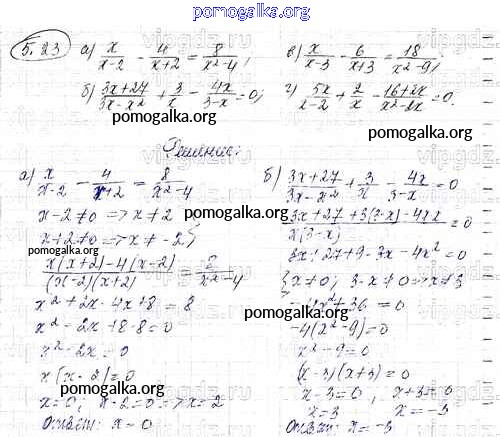 pomogalka.org
5.23 а) x/(x-2) - 4/(x+2) = 8/(x²-4); в) x/(x-3) - 6/(x+3) = 18/(x²-9);
б) (3x+27)/(3x-x²) + 3/x - 4x/(3-x) = 0; г) 5x/(x-2) + 2/x - (16+2x)/(x²-2x) = 0.
Решение:
а) x/(x-2) - 4/(x+2) = 8/(x²-4)
x-2≠0 => x≠2
x+2≠0 => x≠-2}
(x(x+2)-4(x-2))/((x-2)(x+2)) = 8/(x²-4)
x²+2x-4x+8 = 8
x²-2x+8-8=0
x²-2x=0
x(x-2)=0
x=0; x-2=0=>x=2
Ответ: x=0
б) (3x+27)/(3x-x²) + 3/x - 4x/(3-x) = 0
(3x+27+3(3-x)-4x·x)/(x(3-x)) = 0
3x+27+9-3x-4x²=0
{x≠0; 3-x≠0=>x≠3
-4x²+36=0
-4(x²-9)=0
x²-9=0
(x-3)(x+3)=0
x-3=0; x+3=0
x=3 x=-3
Ответ: x=-3
pomogalka.org